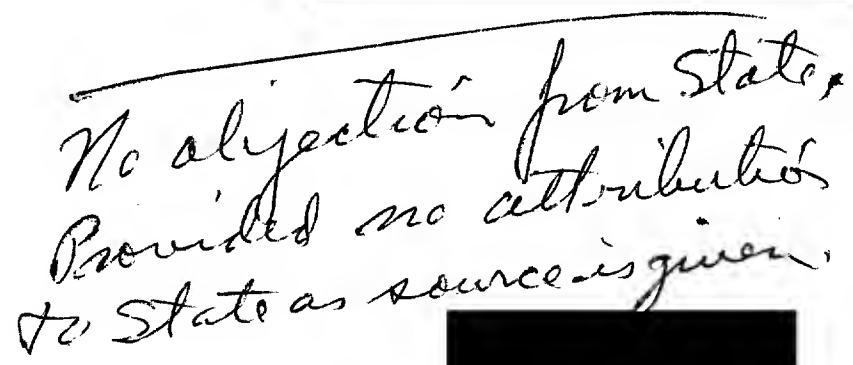 No objection from State,
Provided no attribution
to State as source is given.